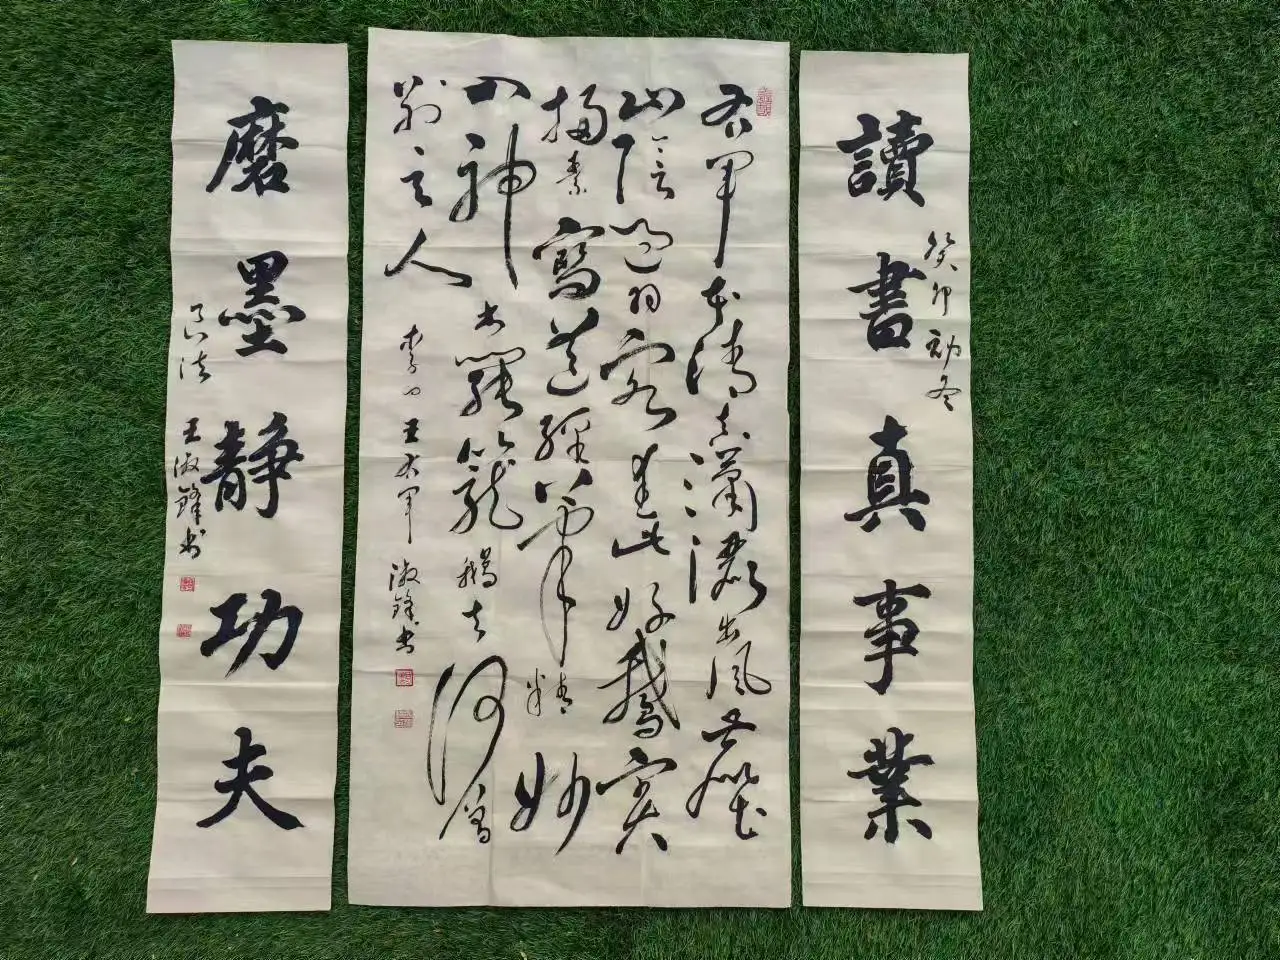 讀書真事業
癸卯初冬
右軍本清真瀟灑出風塵
山陰過羽客愛此好鵝賓
掃素寫道經筆精妙
入神書罷籠鵝去何曾
別主人
李白王右軍淑鋒書
磨墨静功夫
王淑鋒書